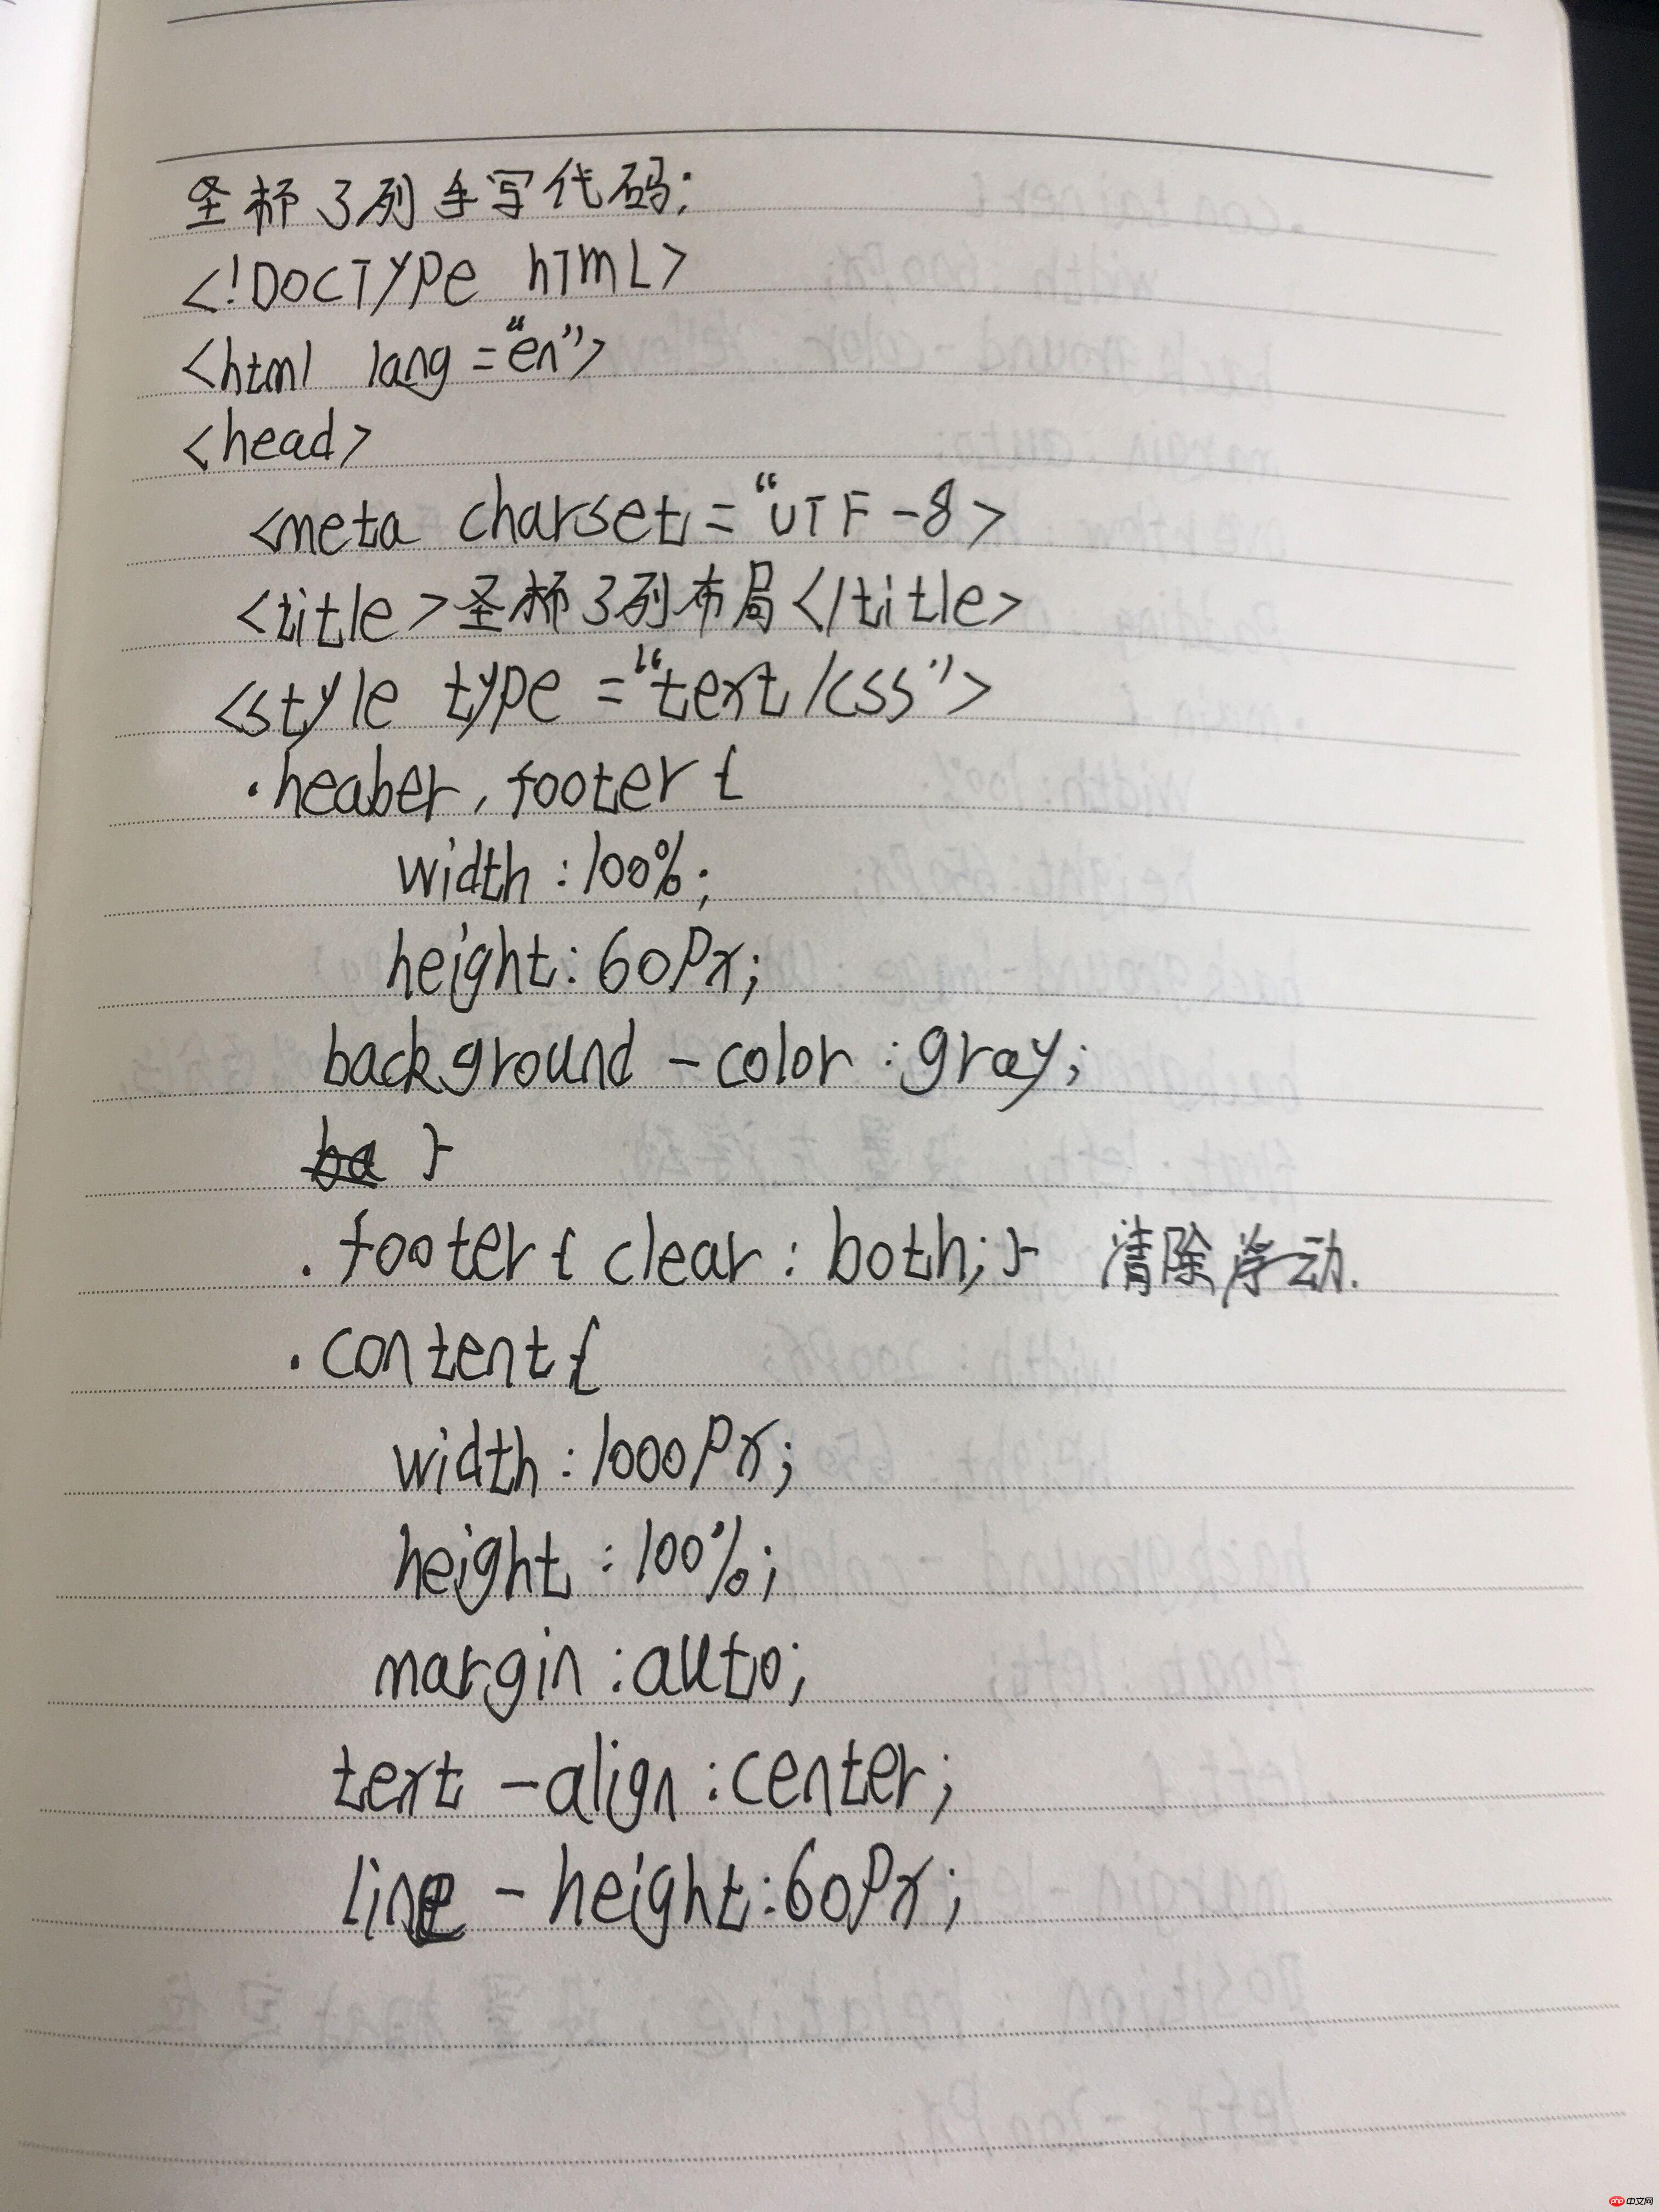 圣杯3列手写代码:
<!DOCTYPe hTmL>
<html lang="en">
<head>
<meta charset="UTF-8>
<title>圣杯3列布局</title>
<style type="text/css">
.heaber,footer{
width:100%;
height:60Px;
background-color:gray;
}
.footer{clear:both;} 清除浮动.
.content{
width:1000Px;
height:100%;
margin:auto;
text-align:center;
line-height:60Px;
php中文网